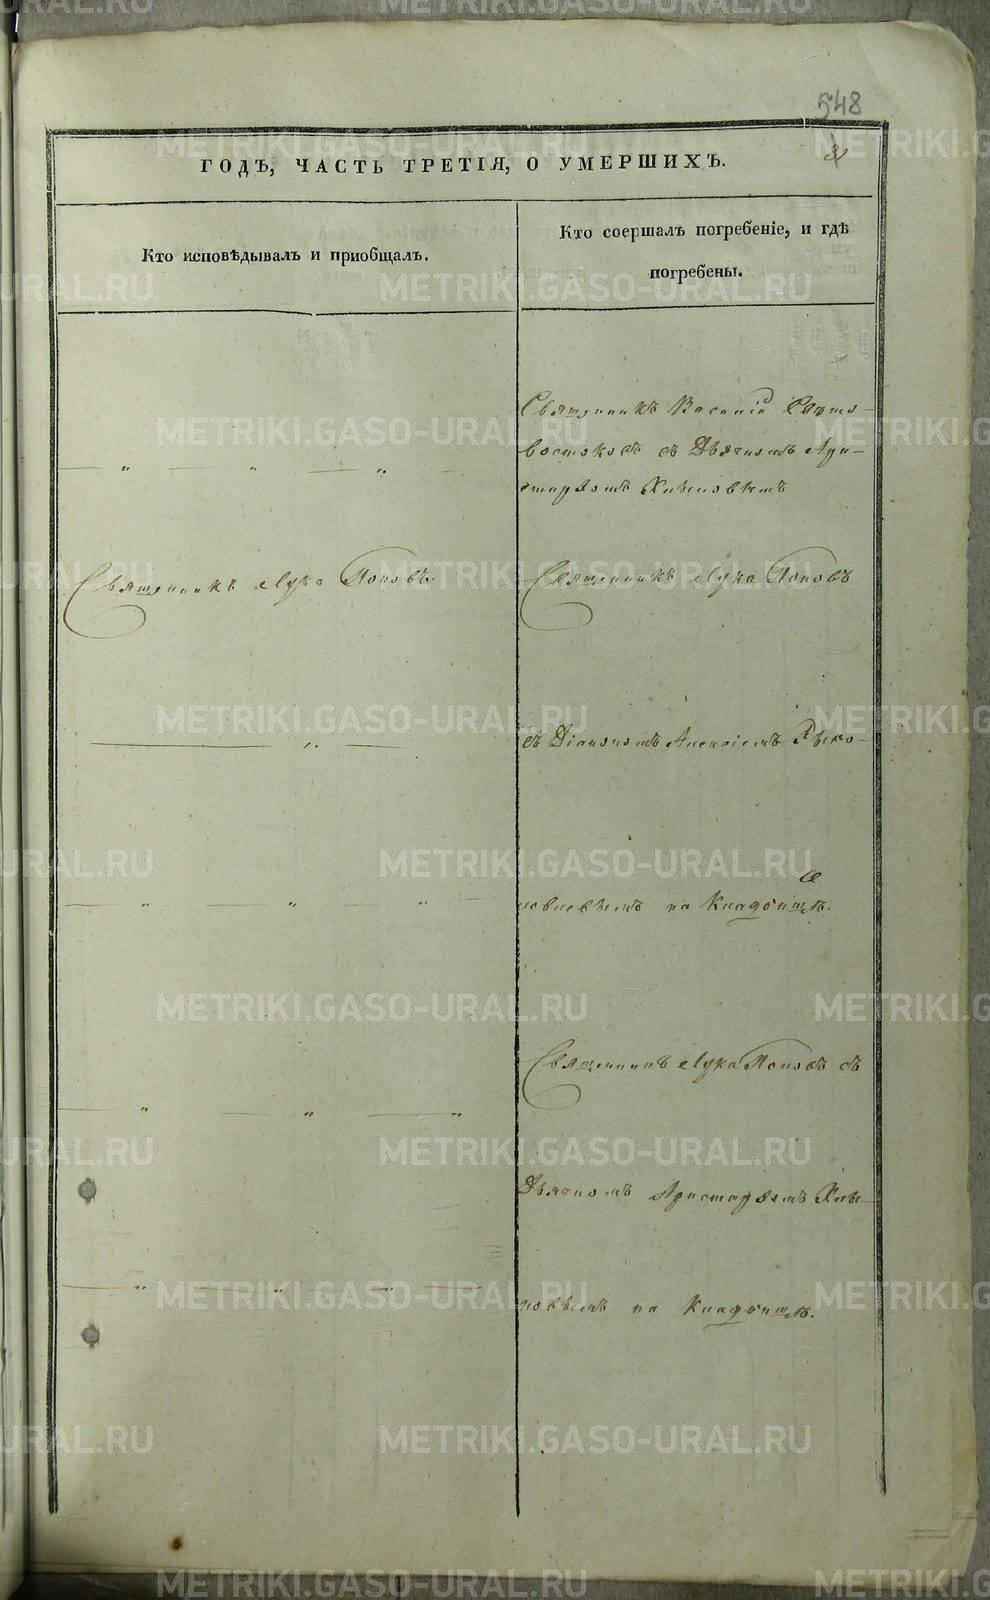 548
31
ГОДЪ, ЧАСТЬ ТРЕТІЯ, О УМЕРШИХЪ.
Кто исповѣдывалъ и приобщалъ.
Кто соершалъ погребеніе, и гдѣ
погребены.
Священникъ Василій Свѣто-
востоковъ съ Дьячкомъ Ари-
стархомъ Хлыновымъ
Священникъ Лука Поповъ.
Священникъ Лука Поповъ
съ Діакономъ Алексіемъ
на Кладбищѣ.
Священникъ Лука Поповъ съ
Дьячкомъ Аристархомъ Хлы-
новымъ на Кладбищѣ.
METRIKI.GASO-URAL.RU